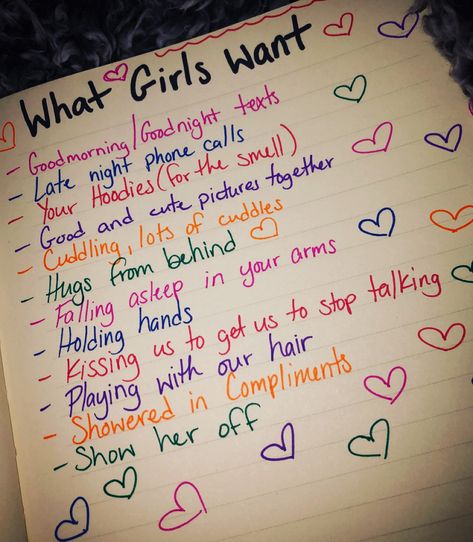 What Girls Want
- Goodmorning/Goodnight texts
- Late night phone calls
- Your Hoodies (for the smell)
- Good and cute pictures together
- Cuddling, lots of cuddles
- Hugs from behind
- Falling asleep in your arms
- Holding hands
- Kissing us to get us to stop talking
- Playing with our hair
- Showered in Compliments
- Show her off